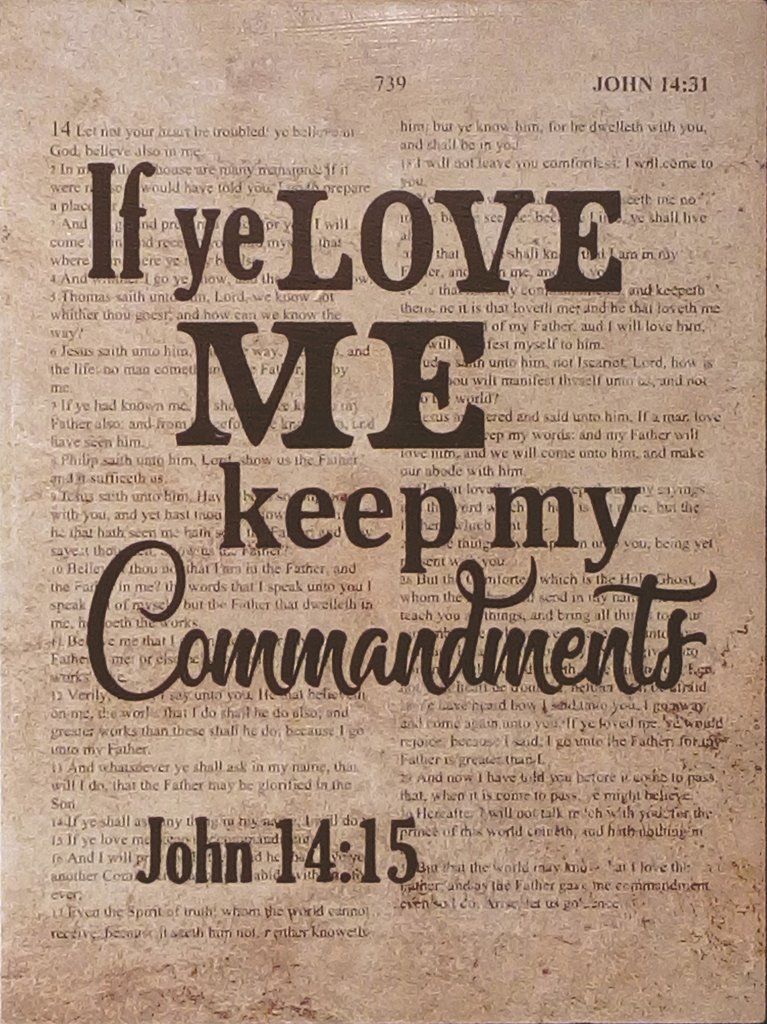 739
JOHN 14:31
If ye LOVE
ME
keep my
Commandments
John 14:15
14 Let not your heart be troubled: ye believe in
God, believe also in me.
2 In my house are many mansions: if it
were would have told you. prepare
a place
7 And if I will
4 And I go ye
5 Thomas saith unto him, Lord, we know not
whither thou goest; and how can we know the
way?
6 Jesus saith unto him, way, and
the life: no man cometh by
me.
7 If ye had known me, my
Father also: and from
have seen him.
8 Philip saith unto him, Lord, show us the Father
and it sufficeth us.
9 Jesus saith unto him,
with you, and yet hast thou
he that hath seen me hath and
sayest thou Father?
10 that I am in the Father, and
the in me? the words that I speak unto you I
speak of myself: but the Father that dwelleth in
me, he doeth the works.
11 me that I
Father me: or else
12 Verily, I say unto you, He that believeth
on me, the works that I do shall he do also; and
greater works than these shall he do; because I go
unto my Father.
13 And whatsoever ye shall ask in my name, that
will I do, that the Father may be glorified in the
Son
14 If ye shall ask any thing in my name, I will do
15 If ye love me
16 And I will
another
ever;
17 Even the Spirit of truth; whom the world cannot
receive, because it seeth him not, neither knoweth
him: but ye know him, for he dwelleth with you,
and shall be in you.
18 I will not leave you comfortless: I will come to
you.
seeth me no
ye shall live
that shall I am in my
and in me, and
and keepeth
them, he it is that loveth me: and he that loveth me
of my Father, and I will love him,
will myself to him.
unto him, not Iscariot, Lord, how is
thou wilt manifest thyself unto us, and not
world?
and said unto him, If a man love
keep my words: and my Father will
love him, and we will come unto him, and make
our abode with him.
my sayings
word which is but the
you, being yet
26 But the which is the Holy Ghost,
whom the send in my name,
teach you things, and bring all things to your
have heard how I said unto you, I go away
and come again unto you. If ye loved me, ye would
rejoice, because I said, I go unto the Father: for my
Father is greater than I.
29 And now I have told you before it come to pass,
that, when it is come to pass, ye might believe.
Hereafter I will not talk much with you: for the
prince of this world cometh, and hath nothing in
But that the world may know that I love the
Father; and as the Father gave me commandment,
even so I do. Arise, let us go hence.